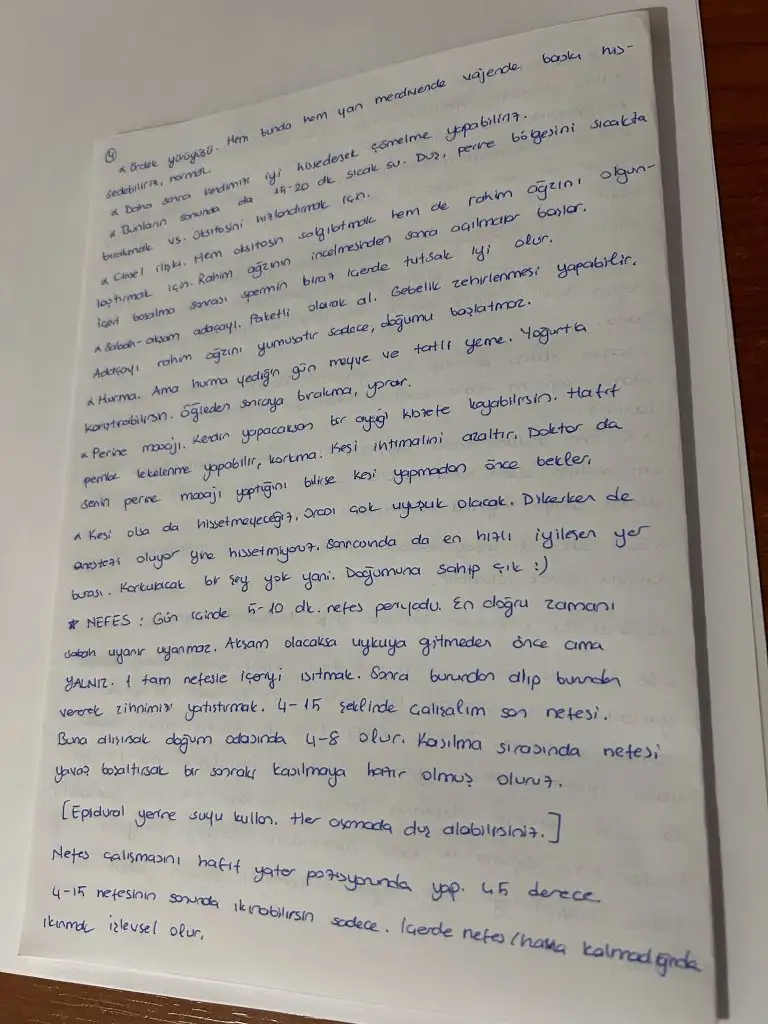 ④
* Ördek yürüyüşü. Hem bunda hem yan merdivende vajende baskı his-
sedebiliriz, normal.
* Daha sonra kendimizi iyi hissedersek çömelme yapabiliriz.
* Bunların sonunda da 15-20 dk. sıcak su. Duş, perine bölgesini sıcakta
bırakmak vs. Oksitosini hızlandırmak için.
* Cinsel ilişki. Hem oksitosin salgılatmak hem de rahim ağzını olgun-
laştırmak için. Rahim ağzının incelmesinden sonra açılmalar başlar.
İçeri boşalma sonrası spermin biraz içerde tutsak iyi olur.
* Sabah-akşam adaçayı. Paketli olarak al. Gebelik zehirlenmesi yapabilir.
Adaçayı rahim ağzını yumuşatır sadece, doğumu başlatmaz.
* Hurma. Ama hurma yediğin gün meyve ve tatlı yeme. Yoğurtla
karıştırabilirsin. Öğleden sonraya bırakma, yorar.
* Perine masajı. Kendin yapacaksan bir ayağı klozete koyabilirsin. Hafif
pembe lekelenme yapabilir, korkma. Kesi ihtimalini azaltır. Doktor da
senin perine masajı yaptığını bilirse kesi yapmadan önce bekler.
* Kesi olsa da hissetmeyeceğiz, orası çok uyuşuk olacak. Dikerken de
anestezi oluyor yine hissetmiyoruz. Sonrasında da en hızlı iyileşen yer
burası. Korkulacak bir şey yok yani. Doğumuna sahip çık :)
* NEFES : Gün içinde 5-10 dk. nefes periyodu. En doğru zamanı
sabah uyanır uyanmaz. Akşam olacaksa uykuya gitmeden önce ama
YALNIZ. 1 tam nefesle içeriyi ısıtmak. Sonra burundan alıp burundan
vererek zihnimizi yatıştırmak. 4-15 şeklinde çalışalım son nefesi.
Buna alışırsak doğum odasında 4-8 olur. Kasılma sırasında nefesi
yavaş boşaltırsak bir sonraki kasılmaya hazır olmuş oluruz.
[Epidural yerine suyu kullan. Her aşamada duş alabilirsiniz.]
Nefes çalışmasını hafif yatar pozisyonunda yap. 45 derece
4-15 nefesinin sonunda ıkınabilirsin sadece. İçerde nefes/hava kalmadığında
ıkınmak işlevsel olur.